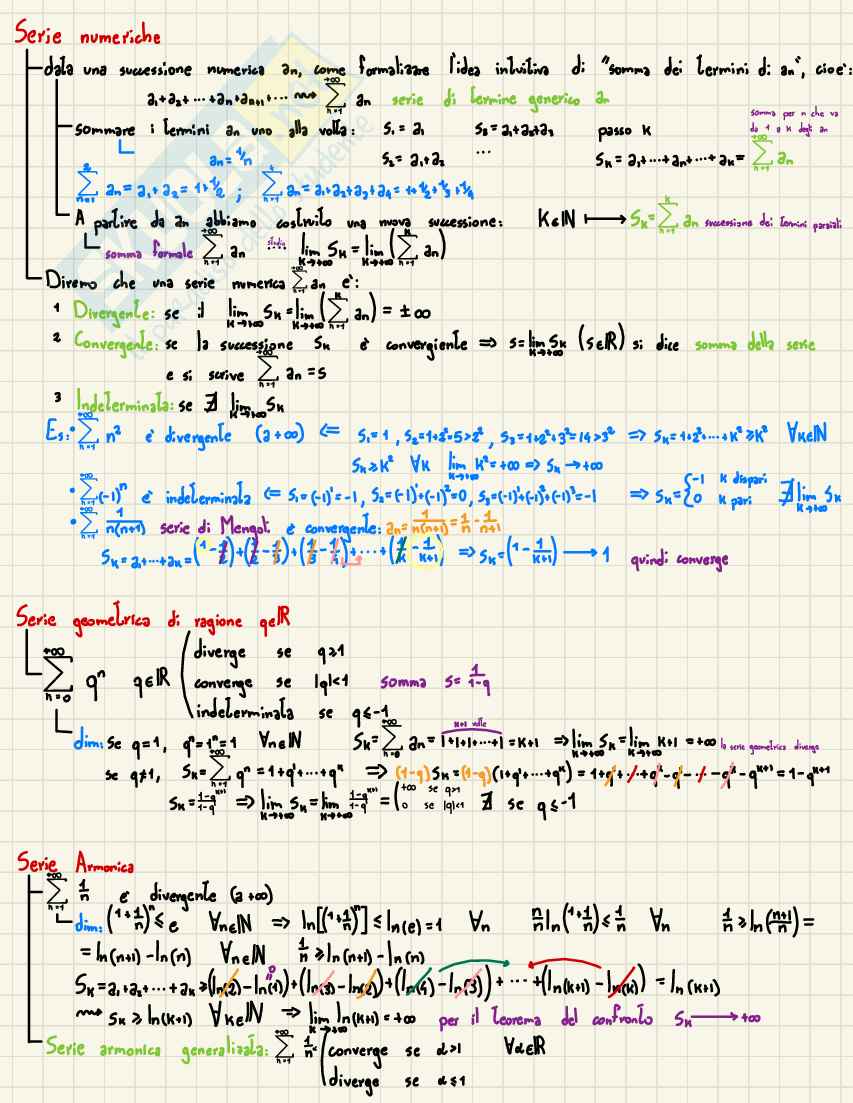 Serie numeriche
data una successione numerica an, come formalizzare l'idea intuitiva di "somma dei termini di an", cioè:
a₁+a₂+⋯+aₙ+aₙ₊₁+⋯ ⇝ ∑_{n=1}^{+∞} an serie di termine generico an
somma per n che va
da 1 a K degli an
sommare i termini an uno alla volta: S₁=a₁ S₃=a₁+a₂+a₃ passo K
an=1/n S₂=a₁+a₂ ⋯ Sₖ=a₁+⋯+aₙ+⋯+aₖ= ∑_{n=1}^{+∞} an
∑_{n=1}^{2} an=a₁+a₂=1+1/2 ; ∑_{n=1}^{4} an=a₁+a₂+a₃+a₄=1+1/2+1/3+1/4
A partire da an abbiamo costruito una nuova successione: K∈ℕ ⟼ Sₖ=∑_{n=1}^{K} an successione dei termini parziali
somma formale ∑_{n=1}^{+∞} an studio lim_{K→+∞} Sₖ=lim_{K→+∞}(∑_{n=1}^{K} an)
Diremo che una serie numerica ∑_{n=1}^{+∞} an è:
1 Divergente: se il lim_{K→+∞} Sₖ=lim_{K→+∞}(∑_{n=1}^{K} an) = ±∞
2 Convergente: se la successione Sₖ è convergiente ⇒ s=lim_{K→+∞} Sₖ (s∈ℝ) si dice somma della serie
e si scrive ∑_{n=1}^{+∞} an=s
3 Indeterminata: se ∄ lim_{K→+∞} Sₖ
Es: • ∑_{n=1}^{+∞} n² è divergente (a+∞) ⇐ S₁=1, S₂=1+2²=5>2², S₃=1+2²+3²=14>3² ⇒ Sₖ=1+2²+⋯+K²≥K² ∀K∈ℕ
Sₖ≥K² ∀K lim_{K→+∞} K²=+∞ ⇒ Sₖ→+∞
• ∑_{n=1}^{+∞}(-1)ⁿ è indeterminata ⇐ S₁=(-1)¹=-1, S₂=(-1)¹+(-1)²=0, S₃=(-1)¹+(-1)²+(-1)³=-1 ⇒ Sₖ={-1 K dispari
0 K pari ∄ lim_{K→+∞} Sₖ
• ∑_{n=1}^{+∞} 1/n(n+1) serie di Mengoli è convergente: an=1/n(n+1)=1/n-1/n+1
Sₖ=a₁+⋯+aₖ=(1-1/2)+(1/2-1/3)+(1/3-1/4)+⋯+(1/K-1/K+1) ⇒ Sₖ=(1-1/K+1)→1 quindi converge
Serie geometrica di ragione q∈ℝ
diverge se q≥1
∑_{n=0}^{+∞} qⁿ q∈ℝ converge se |q|<1 somma s=1/1-q
indeterminata se q≤-1
K+1 volte
dim: se q=1, qⁿ=1ⁿ=1 ∀n∈ℕ Sₖ=∑_{n=0}^{+∞} an=1+1+1+⋯+1=K+1 ⇒ lim_{K→+∞} Sₖ=lim_{K→+∞} K+1=+∞ la serie geometrica diverge
se q≠1, Sₖ=∑_{n=1}^{+∞} qⁿ=1+q¹+⋯+qᴷ ⇒ (1-q)Sₖ=(1-q)(1+q¹+⋯+qᴷ)=1+q¹+⋯+qᴷ-q¹-⋯-qᴷ-qᴷ⁺¹=1-qᴷ⁺¹
Sₖ=1-qᴷ⁺¹/1-q ⇒ lim_{K→+∞} Sₖ=lim_{K→+∞} 1-qᴷ⁺¹/1-q=(+∞ se q>1
0 se |q|<1 ∄ se q≤-1
Serie Armonica
∑_{n=1}^{+∞} 1/n è divergente (a+∞)
dim: (1+1/n)ⁿ≤e ∀n∈ℕ ⇒ ln[(1+1/n)ⁿ]≤ln(e)=1 ∀n n/n ln(1+1/n)≤1/n ∀n 1/n≥ln(n+1/n)=
=ln(n+1)-ln(n) ∀n∈ℕ 1/n≥ln(n+1)-ln(n)
Sₖ=a₁+a₂+⋯+aₖ≥(ln(2)-ln(1))+(ln(3)-ln(2))+(ln(4)-ln(3))+⋯+(ln(K+1)-ln(K))=ln(K+1)
⇝ Sₖ≥ln(K+1) ∀K∈ℕ ⇒ lim_{K→+∞} ln(K+1)=+∞ per il teorema del confronto Sₖ→+∞
Serie armonica generalizzata: ∑_{n=1}^{+∞} 1/n^α (converge se α>1 ∀α∈ℝ
diverge se α≤1